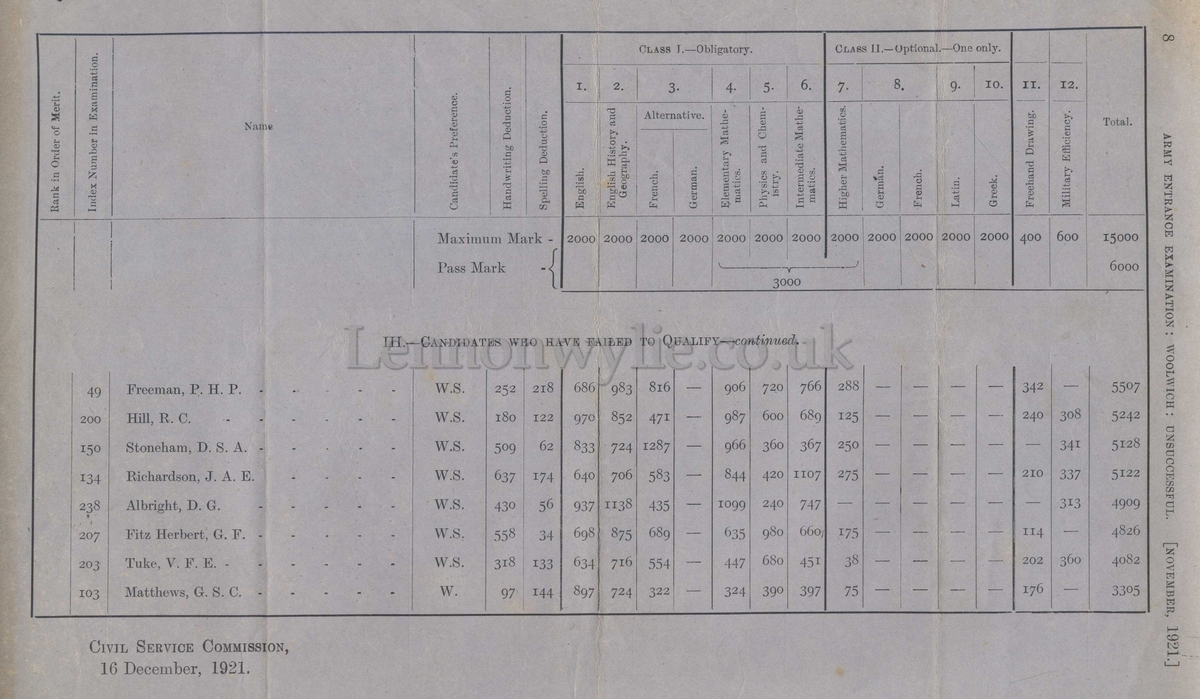 8
ARMY ENTRANCE EXAMINATION: WOOLWICH: UNSUCCESSFUL. [NOVEMBER, 1921.]
Rank in Order of Merit.
Index Number in Examination.
Name
Candidate's Preference.
Handwriting Deduction.
Spelling Deduction.
CLASS I.—Obligatory.
CLASS II.—Optional.—One only.
1. 2. 3. 4. 5. 6. 7. 8. 9. 10. 11. 12.
Alternative.
English.
English History and Geography.
French.
German.
Elementary Mathematics.
Physics and Chemistry.
Intermediate Mathematics.
Higher Mathematics.
German.
French.
Latin.
Greek.
Freehand Drawing.
Military Efficiency.
Total.
Maximum Mark - 2000 2000 2000 2000 2000 2000 2000 2000 2000 2000 2000 2000 400 600 15000
Pass Mark - 6000
3000
III.—CANDIDATES WHO HAVE FAILED TO QUALIFY—continued.
Lennonwylie.co.uk
49 Freeman, P. H. P. - - - - - W.S. 252 218 686 983 816 — 906 720 766 288 — — — — 342 — 5507
200 Hill, R. C. - - - - - W.S. 180 122 970 852 471 — 987 600 689 125 — — — — 240 308 5242
150 Stoneham, D. S. A. - - - - - W.S. 509 62 833 724 1287 — 966 360 367 250 — — — — — 341 5128
134 Richardson, J. A. E. - - - - W.S. 637 174 640 706 583 — 844 420 1107 275 — — — — 210 337 5122
238 Albright, D. G. - - - - - W.S. 430 56 937 1138 435 — 1099 240 747 — — — — — — 313 4909
207 Fitz Herbert, G. F. - - - - - W.S. 558 34 698 875 689 — 635 980 660 175 — — — — 114 — 4826
203 Tuke, V. F. E. - - - - - - W.S. 318 133 634 716 554 — 447 680 451 38 — — — — 202 360 4082
103 Matthews, G. S. C. - - - - - W. 97 144 897 724 322 — 324 390 397 75 — — — — 176 — 3305
CIVIL SERVICE COMMISSION,
16 December, 1921.